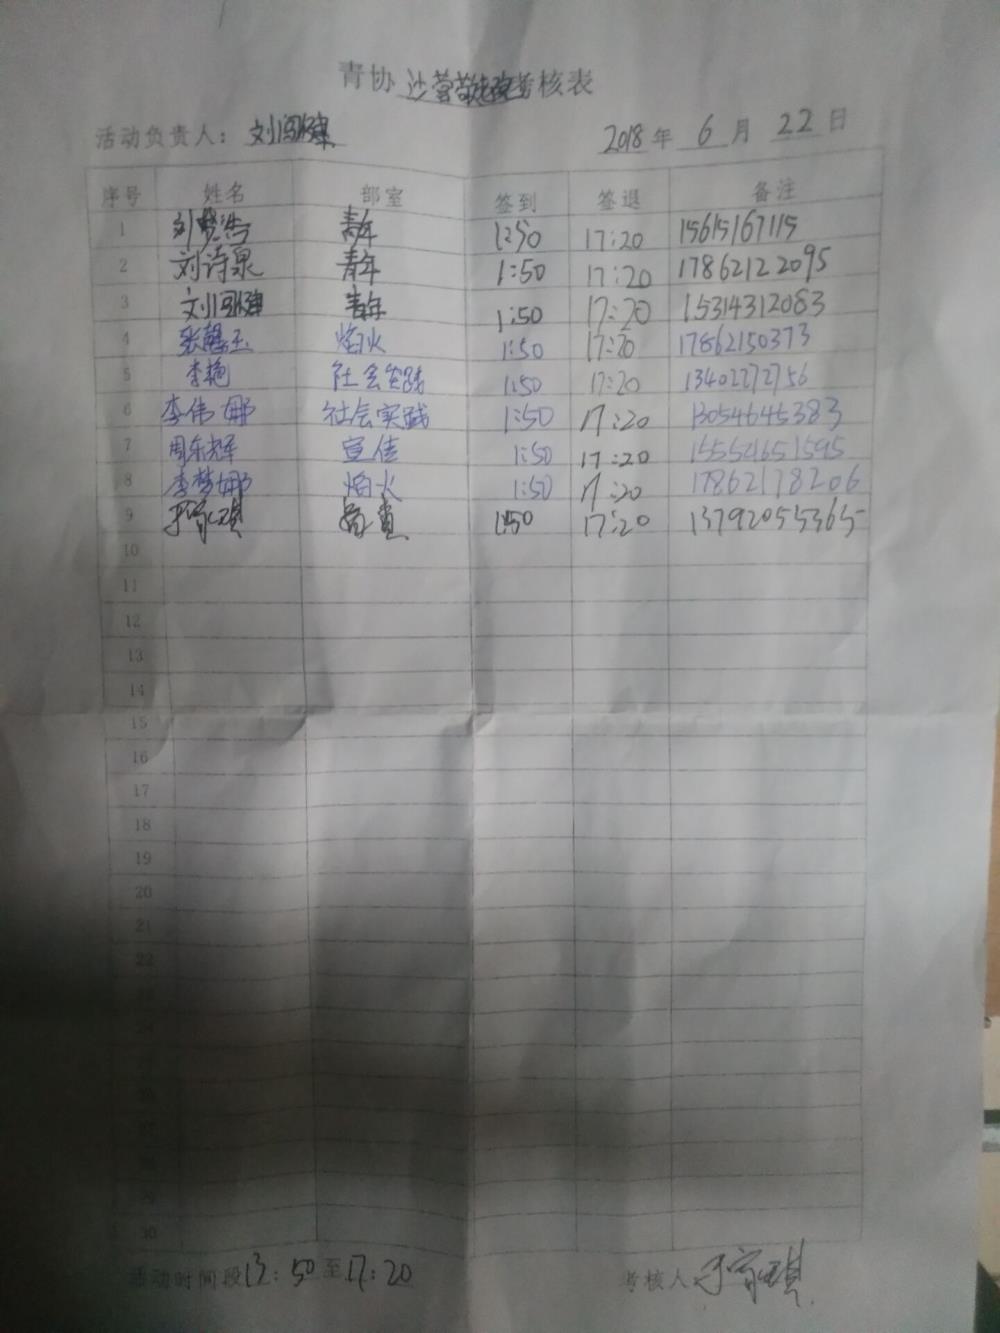 青协沙营敬老院考核表
活动负责人：刘国健 2018年 6 月 22 日
序号 姓名 部室 签到 签退 备注
1 刘梦浩 青年 1:50 17:20 15615167115
2 刘诗泉 青年 1:50 17:20 17862122095
3 刘国健 青年 1:50 17:20 15314312083
4 张 玉 焰火 1:50 17:20 17862150373
5 李艳 社会实践 1:50 17:20 13402272756
6 李伟娜 社会实践 1:50 17:20 13054645383
7 周东辉 宣传 1:50 17:20 15554651595
8 李梦娜 焰火 1:50 17:20 17862178206
9 于 琪 1:50 17:20 13792055365
10
11
12
13
14
15
16
17
18
19
20
21
22
23
24
25
26
27
28
29
30
活动时间段13：50至17：20 考核人 于 琪